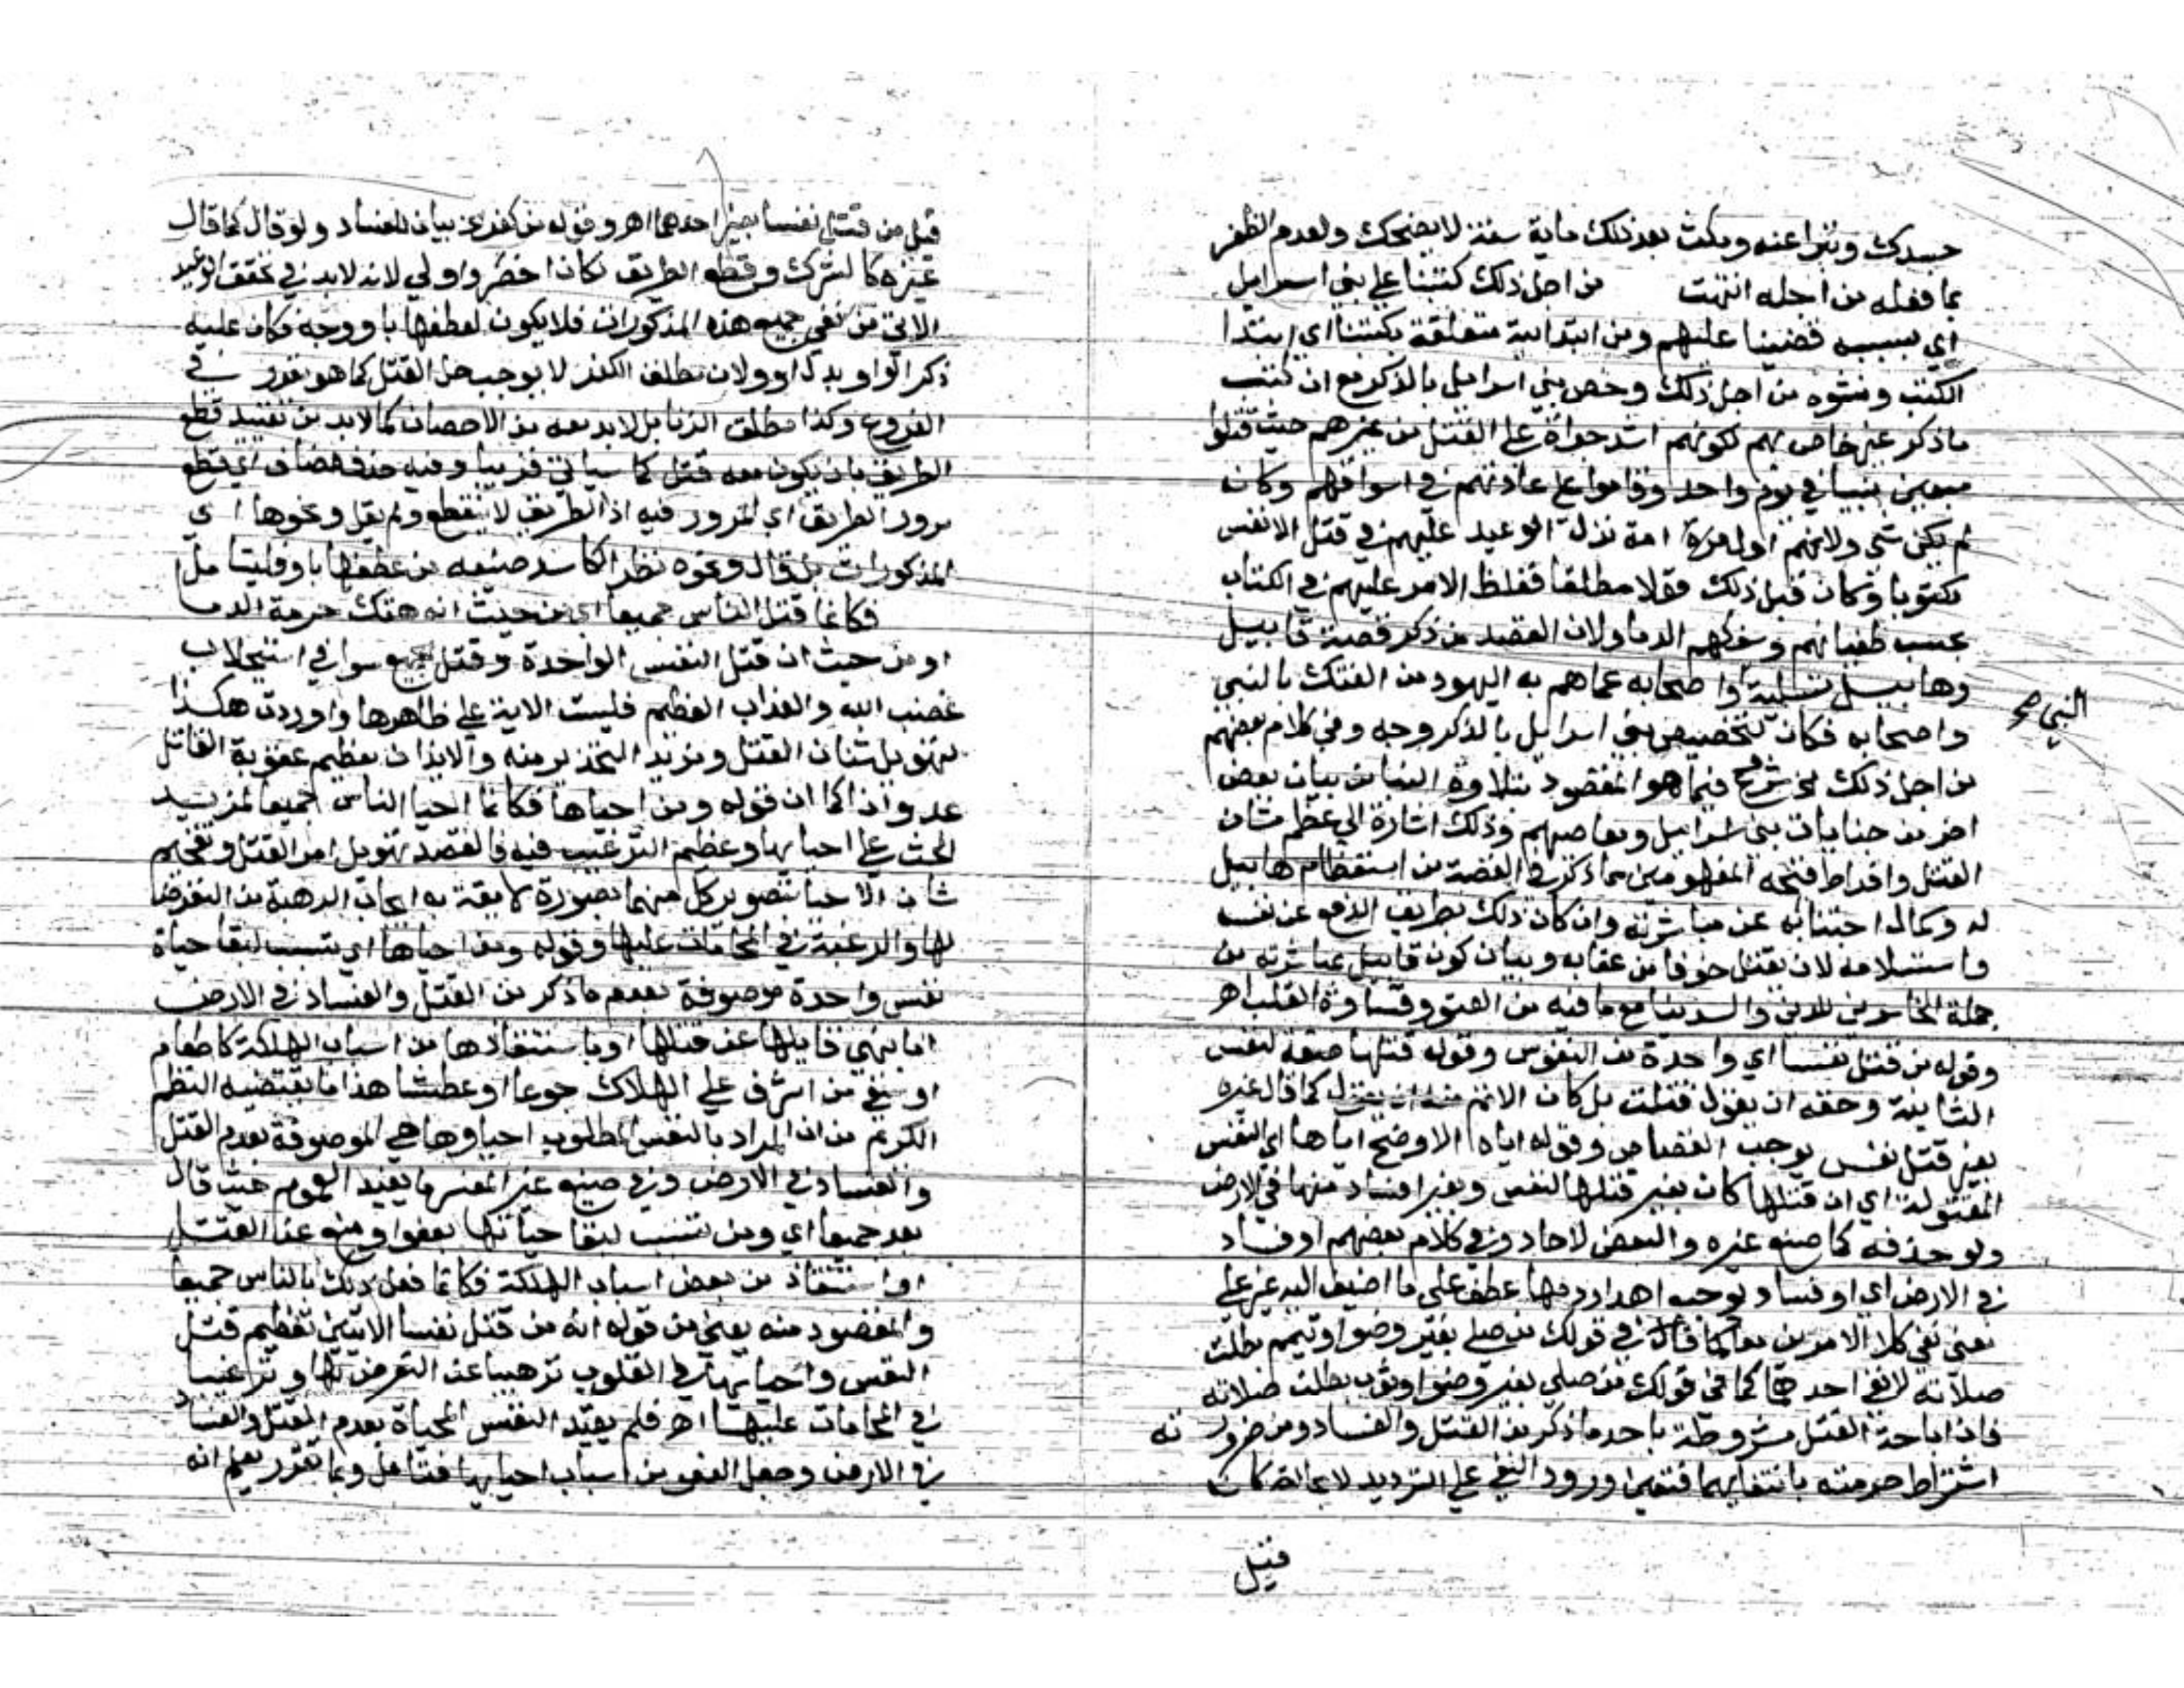 جسدك وتبرا عنه ومكث بعد ذلك ماية سنة لا يضحك ولعدم الظفر
بما فعله من اجله انتهت من اجل ذلك كتبنا علي بني اسراييل
اي بسببه قضينا عليهم ومن ابتدايية متعلقة بكتبنا اي ابتدا
الكتب ونشوه من اجل ذلك وخص بني اسراييل بالذكر مع ان كتب
ما ذكر غير خاص بهم لكونهم اشد جراة علي القتل من غيرهم حيث قتلوا
سبعين نبيا في يوم واحد وقاموا علي عادتهم في اسواقهم وكان
لم يكن شي ولانهم اول امة نزل الوعيد عليهم في قتل الانفس
مكتوبا وكان قبل ذلك قولا مطلقا فغلظ الامر عليهم في الكتاب
بحسب طغيانهم وسفكهم الدما ولان القصد من ذكر قصة قابيل
وهابيل تسلية واصحابه عما هم به اليهود من الفتك بالنبي
النبي صح
واصحابه فكان لتخصيص بني اسرايل بالذكر وجه وفي كلام بعضهم
من اجل ذلك شرع فيما هو المقصود بتلاوة النبا من بيان بعض
اخر من جنايات بني اسراييل ومعاصيهم وذلك اشارة الي عظم شان
القتل وافراط قبحه المفهومين مما ذكر في القصة من استعظام هابيل
له وكمال اجتنابه عن مباشرته وان كان ذلك بطريق الدفع عن نفسه
واستسلامه لان يقتل خوفا من عقابه وبيان كون قابيل بمباشرته من
جملة الخاسرين للدين والدنيا مع ما فيه من العتو وقساوة القلب اهـ
وقوله من قتل نفسا اي واحدة من النفوس وقوله قتلها صفة لنفس
الثانية وحقه ان يقول قتلت بل كان الاتم منه ان يقول كما قال غيره
بغير قتل نفس يوجب القصاص وقوله اياه الاوضح اياها اي النفس
المقتولة اي ان قتلها كان بغير قتلها لنفس وبغير افساد منها في الارض
ولو حذفه كما صنع غيره والبعض لاجاد وفي كلام بعضهم او فساد
في الارض اي او فساد يوجب اهدار دمها عطف علي ما اضيف اليه غير علي
معني نفي كلا الامرين معا كما قال في قولك من صلي بغير وضو او تيمم بطلت
صلاته لا نفي احدهما كما في قولك من صلي بغير وضو او ثوب بطلت صلاته
فان اباحة القتل مشروطة باحد ما ذكر من القتل والفساد ومن ضرورته
اشتراط حرمته بانتفايهما فتعين ورود النفي علي الترديد لا محالة كان
قيل
قيل من قتل نفسا بغير احدهما اهـ وقوله من كفر بيان للفساد ولو قال كما قال
غيره كالشرك وقطع الطريق لكان اخصر واولي لانه لا بد في تحقق الوعيد
الاتي من نفي جميع هذه المذكورات فلا يكون لعطفها باو وجه فكان عليه
ذكر الواو بدل او ولان مطلق الكفر لا يوجب حل القتل كما هو مقرر في
الفروع وكذا مطلق الزنا بل لا بد معه من الاحصان كما لا بد من تقييد قطع
الطريق بان يكون معه قتل كما سياتي قريبا وفيه حذف مضاف اي قطع
مرور الطريق اي المرور فيه اذ الطريق لا ينقطع ولم يقل ونحوها اي
المذكورات بل قال ونحوه نظرا لفاسد صنيعه من عطفها باو فليتامل
فكانما قتل الناس جميعا اي من حيث انه هتك حرمة الدما
او من حيث ان قتل النفس الواحدة وقتل الجميع سوا في استجلاب
غضب الله والعذاب العظيم فليست الاية علي ظاهرها واوردت هكذا
تهويل شان القتل ومزيد التحذير منه والايذان بعظيم عقوبة القاتل
عدوانا كما ان قوله ومن احياها فكانما احيا الناس جميعا لمزيد
الحث علي احيايها وعظيم الترغيب فيه فالقصد تهويل امر القتل وتفخيم
شان الاحيا بتصوير كل منهما بصورة لايقة به ايجاب الرهبة من التعرض
لها والرغبة في المحامات عليها وقوله ومن احياها اي تسبب لبقا حياة
نفس واحدة موصوفة بعدم ما ذكر من القتل والفساد في الارض
اما بنهي قاتلها عن قتلها او باستنقاذها من اسباب الهلكة كاطعام
او سقي من اشرف علي الهلاك جوعا او عطشا هذا ما يقتضيه النظم
الكريم من ان المراد بالنفس المطلوب احياوها هي الموصوفة بعدم القتل
والفساد في الارض وفي صنيع غير المفسر ما يفيد العموم حيث قال
بعد جميعا اي ومن تسبب لبقا حياتها بعفو او منع عن القتل
او استنقاذ من بعض اسباب الهلكة فكانما فعل ذلك بالناس جميعا
والمقصود منه يعني من قوله انه من قتل نفسا الايتين تعظيم قتل
النفس واحيايها في القلوب ترهيبا عن التعرض لها وترغيبا
في المحامات عليها اهـ فلم يقيد النفس المحياة بعدم القتل والفساد
في الارض وجعل العفو من اسباب احيايها فتامل وبما تقرر يعلم انه